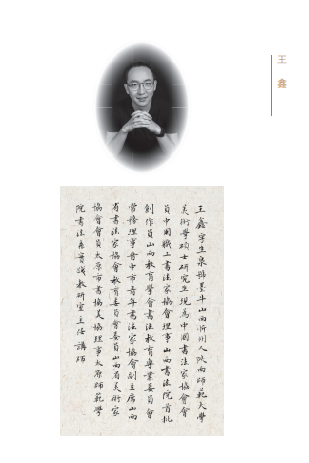 王鑫
王鑫字生泉號墨牛山西忻州人陝西師範大學
美術學碩士研究生現為中國書法家協會會
員中國職工書法家協會理事山西書法院首批
創作員山西教育學會書法教育專業委員會
常務理事晉中市青年書法家協會副主席山西
省書法家協會教育委員會委員山西省美術家
協會會員太原市書協美協理事太原師範學
院書法系實踐教研室主任講師